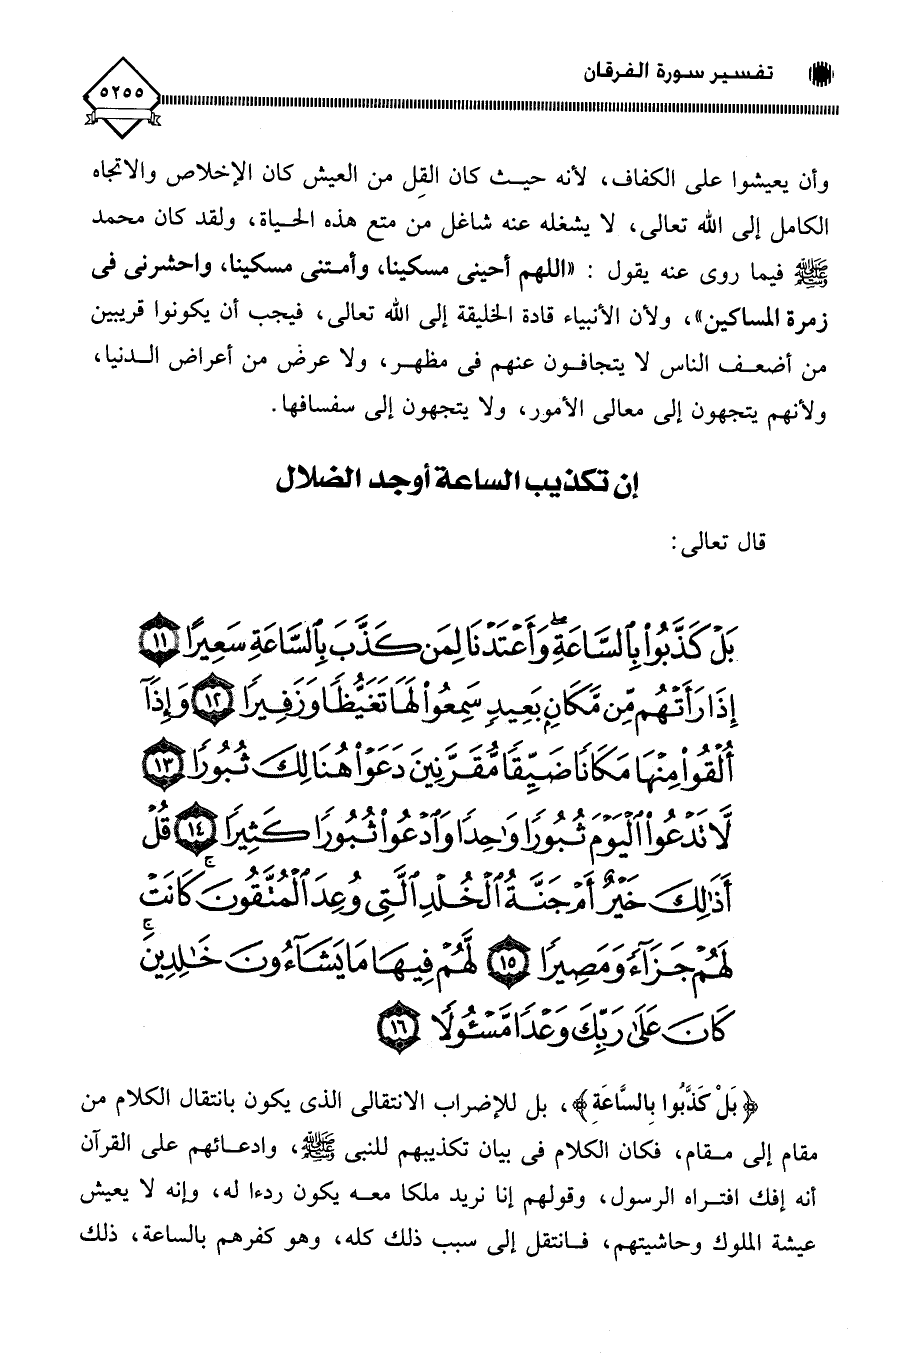 تفسير سورة الفرقان
٥٢٥٥
وأن يعيشوا على الكفاف، لأنه حيث كان القِل من العيش كان الإخلاص والاتجاه
الكامل إلى الله تعالى، لا يشغله عنه شاغل من متع هذه الحياة، ولقد كان محمد
ﷺ فيما روى عنه يقول : «اللهم أحينى مسكينا، وأمتنى مسكينا، واحشرنى فى
زمرة المساكين»، ولأن الأنبياء قادة الخليقة إلى الله تعالى، فيجب أن يكونوا قريبين
من أضعف الناس لا يتجافون عنهم فى مظهر، ولا عرض من أعراض الدنيا،
ولأنهم يتجهون إلى معالى الأمور، ولا يتجهون إلى سفسافها.
إن تكذيب الساعة أوجد الضلال
قال تعالى:
بَلْ كَذَّبُوا۟ بِٱلسَّاعَةِ ۖ وَأَعْتَدْنَا لِمَن كَذَّبَ بِٱلسَّاعَةِ سَعِيرًا ١١
إِذَا رَأَتْهُم مِّن مَّكَانٍۭ بَعِيدٍ سَمِعُوا۟ لَهَا تَغَيُّظًا وَزَفِيرًا ١٢ وَإِذَآ
أُلْقُوا۟ مِنْهَا مَكَانًا ضَيِّقًا مُّقَرَّنِينَ دَعَوْا۟ هُنَالِكَ ثُبُورًا ١٣
لَّا تَدْعُوا۟ ٱلْيَوْمَ ثُبُورًا وَٰحِدًا وَٱدْعُوا۟ ثُبُورًا كَثِيرًا ١٤ قُلْ
أَذَٰلِكَ خَيْرٌ أَمْ جَنَّةُ ٱلْخُلْدِ ٱلَّتِى وُعِدَ ٱلْمُتَّقُونَ ۚ كَانَتْ
لَهُمْ جَزَآءً وَمَصِيرًا ١٥ لَّهُمْ فِيهَا مَا يَشَآءُونَ خَٰلِدِينَ ۚ
كَانَ عَلَىٰ رَبِّكَ وَعْدًا مَّسْـُٔولًا ١٦
﴿بَلْ كَذَّبُوا بِالسَّاعَةِ﴾، بل للإضراب الانتقالى الذى يكون بانتقال الكلام من
مقام إلى مقام، فكان الكلام فى بيان تكذيبهم للنبى ﷺ، وادعائهم على القرآن
أنه إفك افتراه الرسول، وقولهم إنا نريد ملكا معه يكون ردءا له، وإنه لا يعيش
عيشة الملوك وحاشيتهم، فانتقل إلى سبب ذلك كله، وهو كفرهم بالساعة، ذلك